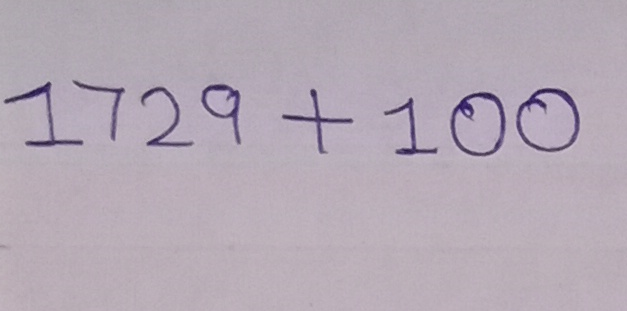 1729 + 100